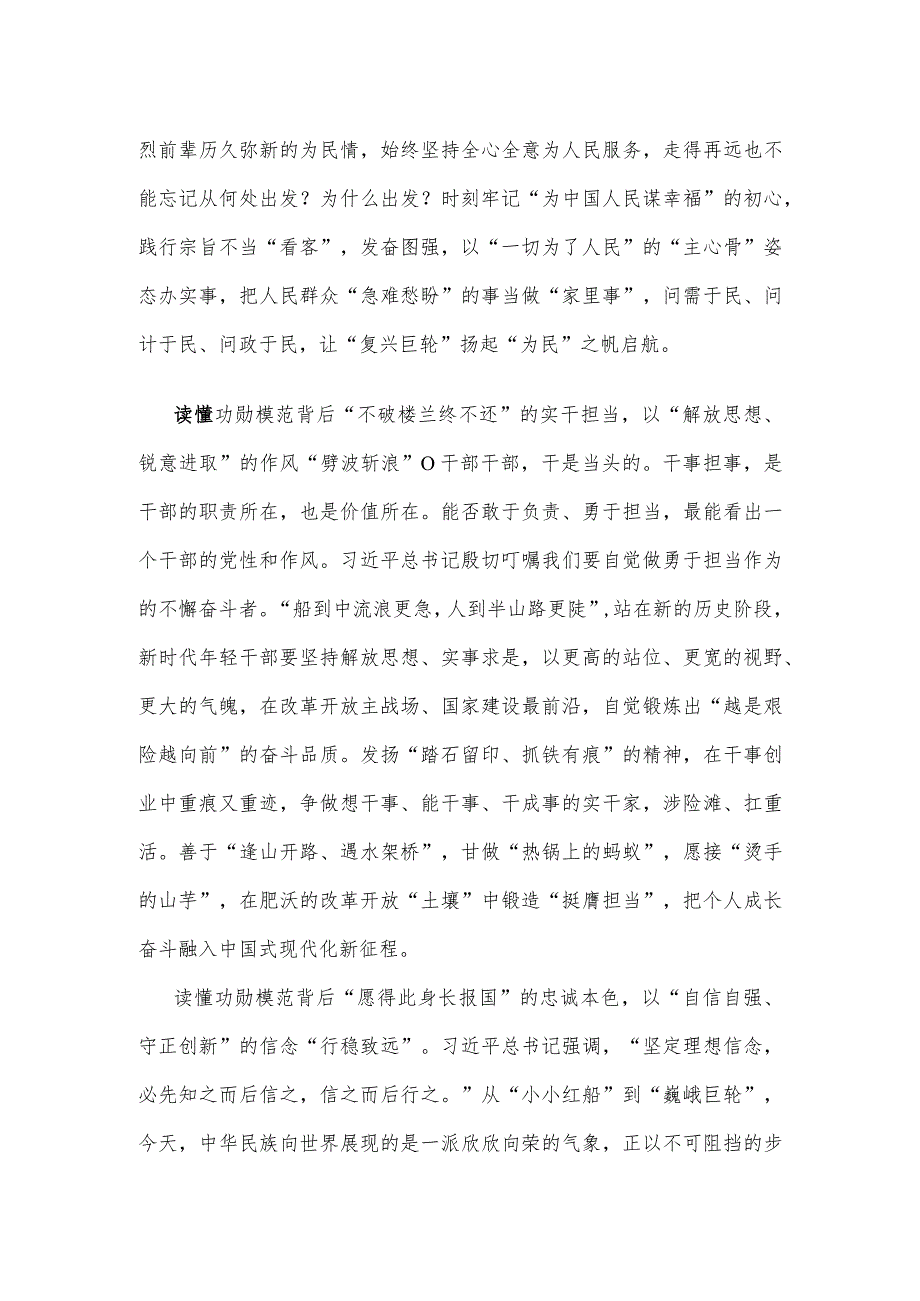 烈前辈历久弥新的为民情，始终坚持全心全意为人民服务，走得再远也不
能忘记从何处出发？为什么出发？时刻牢记“为中国人民谋幸福”的初心，
践行宗旨不当“看客”，发奋图强，以“一切为了人民”的“主心骨”姿
态办实事，把人民群众“急难愁盼”的事当做“家里事”，问需于民、问
计于民、问政于民，让“复兴巨轮”扬起“为民”之帆启航。
读懂功勋模范背后“不破楼兰终不还”的实干担当，以“解放思想、
锐意进取”的作风“劈波斩浪”O干部干部，干是当头的。干事担事，是
干部的职责所在，也是价值所在。能否敢于负责、勇于担当，最能看出一
个干部的党性和作风。习近平总书记殷切叮嘱我们要自觉做勇于担当作为
的不懈奋斗者。“船到中流浪更急，人到半山路更陡”，站在新的历史阶段，
新时代年轻干部要坚持解放思想、实事求是，以更高的站位、更宽的视野、
更大的气魄，在改革开放主战场、国家建设最前沿，自觉锻炼出“越是艰
险越向前”的奋斗品质。发扬“踏石留印、抓铁有痕”的精神，在干事创
业中重痕又重迹，争做想干事、能干事、干成事的实干家，涉险滩、扛重
活。善于“逢山开路、遇水架桥”，甘做“热锅上的蚂蚁”，愿接“烫手
的山芋”，在肥沃的改革开放“土壤”中锻造“挺膺担当”，把个人成长
奋斗融入中国式现代化新征程。
读懂功勋模范背后“愿得此身长报国”的忠诚本色，以“自信自强、
守正创新”的信念“行稳致远”。习近平总书记强调，“坚定理想信念，
必先知之而后信之，信之而后行之。”从“小小红船”到“巍峨巨轮”，
今天，中华民族向世界展现的是一派欣欣向荣的气象，正以不可阻挡的步